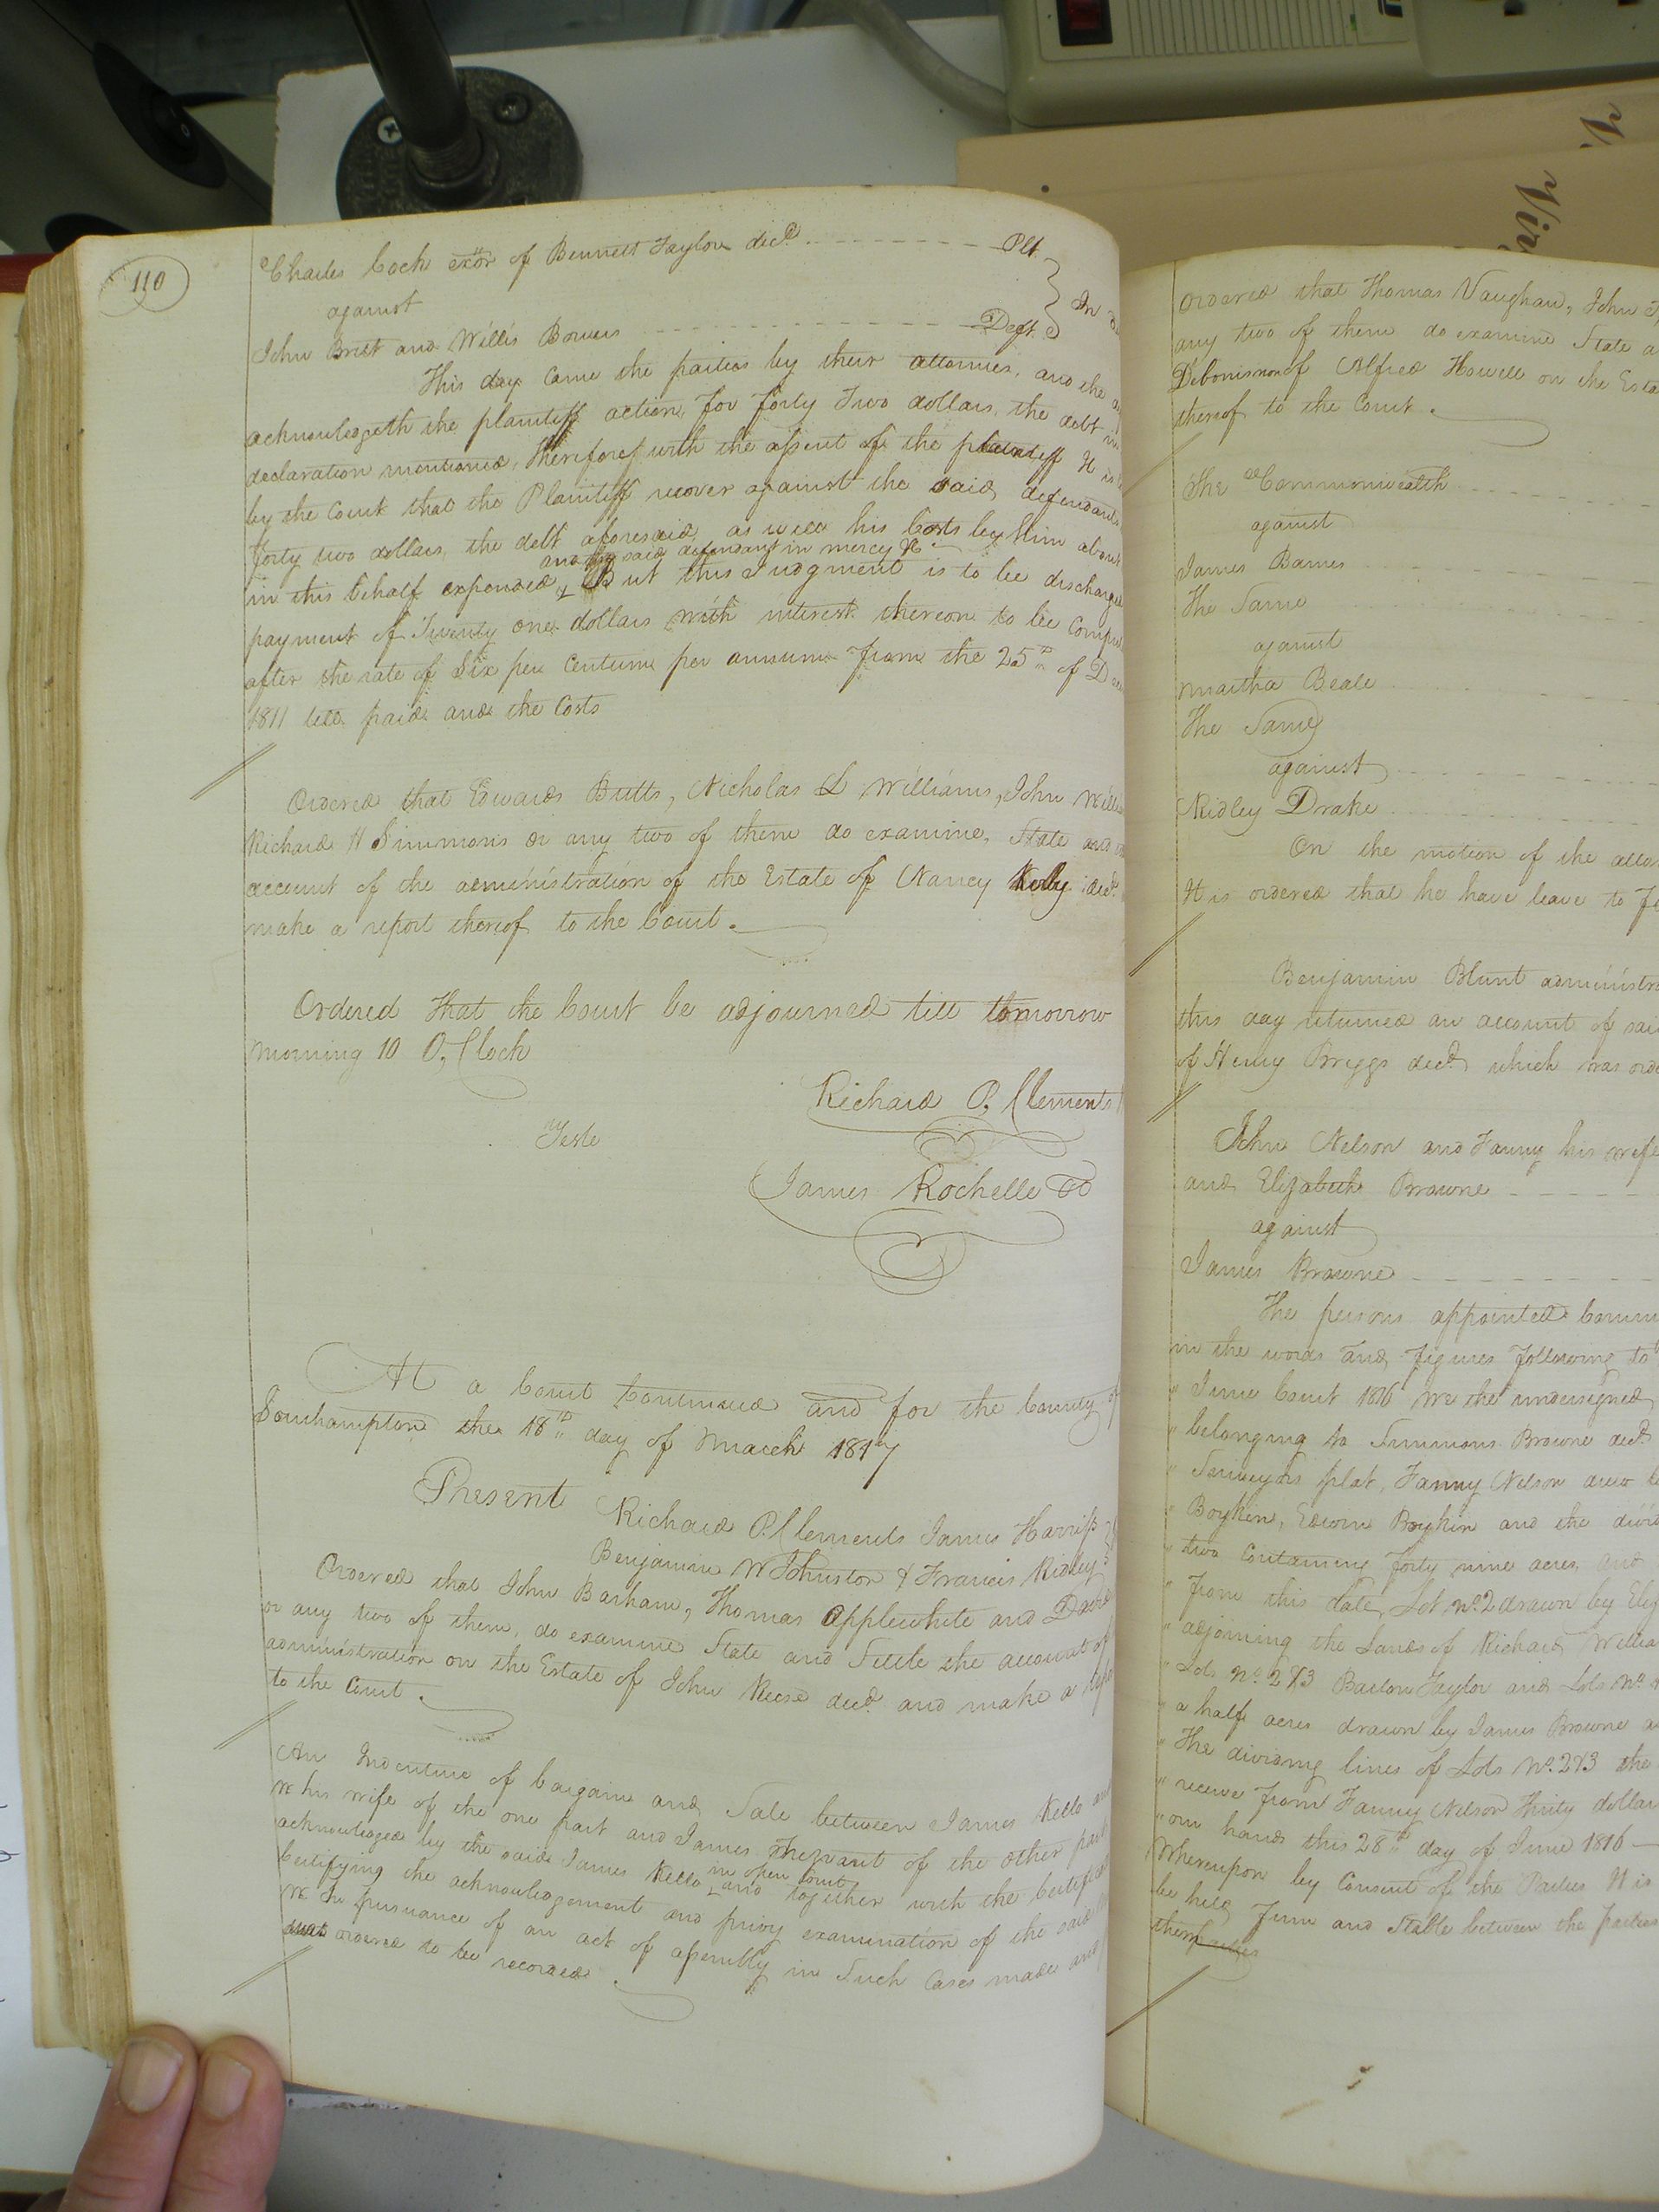 110
Charles Cock exor of Bennett Taylor decd. Plt.
against
In
John Brett and Willis Bowers Deft.
This day Came the parties by their attornies, and the
acknowledgeth the plaintiff action, for forty Two dollars, the debt in
declaration mentioned, Therefore with the assent of the plaintiff It is
by the Court that the Plaintiff recover against the said defendants
forty two dollars, the debt aforesaid, as well his Costs by him about
and the said defendant in mercy &c
in this behalf expended, But this Judgment is to be discharged
payment of Twenty one dollars with interest thereon to be Compu
after the rate of Six per Centum per annum from the 25th of De
1811 till paid and the Costs
Ordered that Edwards Butts, Nicholas L Williams, John Willi
Richard H Simmons or any two of them do examine, State and
account of the administration of the Estate of Nancy Kelly decd.
make a report thereof to the Court.
Ordered that the Court be adjourned till tomorrow
morning 10 O, Clock
Richard P, Clements
Teste
James Rochelle
At a Court Continued and for the County of
Southampton the 18th day of March 1817
Present
Richard P. Clements James Harriss
Benjamin W Johnston & Francis Ridley
Ordered that John Barham, Thomas Applewhite and David
or any two of them, do examine State and Settle the account of
administration on the Estate of John Reese decd. and make a
to the Court.
An Indenture of bargain and Sale between James Kello and
his wife of the one part and James of the other part
in open Court
acknowledged by the said James Kello and together with the Certificate
Certifying the acknowledgement and privy examination of the said
In pursuance of an act of assembly in Such Cases made and
was ordered to be recorded.
Ordered that Thomas Vaughan, John
any two of them do examine State a
Debonisnon of Alfred Howell on the Esta
thereof to the Court.
The Commonwealth
against
James Barnes
The Same
against
Martha Beale
The Same
against
Ridley Drake
On the motion of the atto
It is ordered that he have leave to
Benjamin Blunt administra
this day returned an account of sai
of Henry Briggs decd. which was orde
John Nelson and Fanny his wife
and Elizabeth Browne
against
James Browne
The persons appointed Comm
in the words and figures following to
" June Court 1816 We the undersigned
" belonging to Simmons Browne decd.
" Surveyors plat, Fanny Nelson
" Boykin, Edwin Boykin and the divid
" two Containing forty nine acres, and
" from this date, Lot No. 2 drawn by Eliz
" adjoining the Lands of Richard Willia
" Lots No. 2 & 3 Barton Taylor and Lots No.
" a half acres drawn by James Browne a
" The dividing lines of Lots No. 2 & 3 the
" receive from Fanny Nelson Thirty dollar
" our hands this 28th day of June 1816
Whereupon by Consent of the Parties It is
be held firm and Stable between the parties